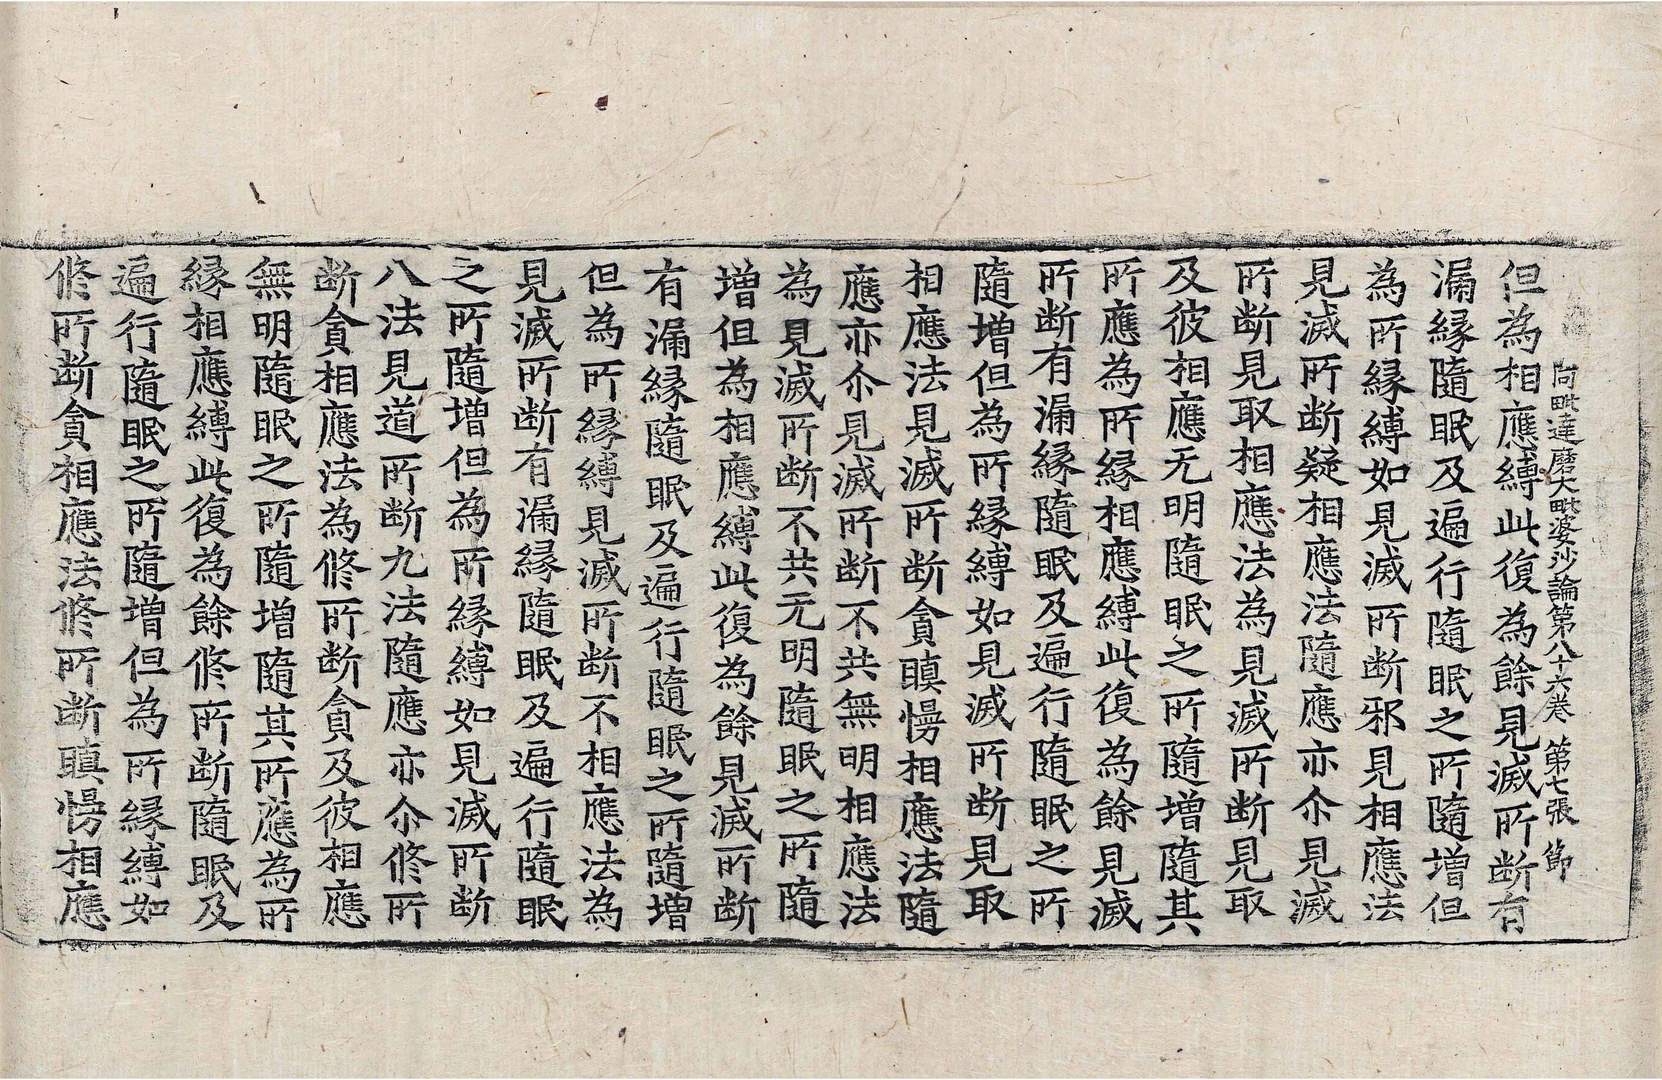 阿毗達磨大毗婆沙論第八十六卷 第七張 節
但為相應縛此復為餘見滅所断有
漏緣隨眠及遍行隨眠之所隨增但
為所緣縛如見滅所断邪見相應法
見滅所断疑相應法隨應亦尒見滅
所断見取相應法為見滅所断見取
及彼相應无明隨眠之所隨增隨其
所應為所緣相應縛此復為餘見滅
所断有漏緣隨眠及遍行隨眠之所
隨增但為所緣縛如見滅所断見取
相應法見滅所断貪瞋慢相應法隨
應亦尒見滅所断不共無明相應法
為見滅所断不共无明隨眠之所隨
增但為相應縛此復為餘見滅所断
有漏緣隨眠及遍行隨眠之所隨增
但為所緣縛見滅所断不相應法為
見滅所断有漏緣隨眠及遍行隨眠
之所隨增但為所緣縛如見滅所断
八法見道所断九法隨應亦尒修所
断貪相應法為修所断貪及彼相應
無明隨眠之所隨增隨其所應為所
緣相應縛此復為餘修所断隨眠及
遍行隨眠之所隨增但為所緣縛如
修所断貪相應法修所断瞋慢相應